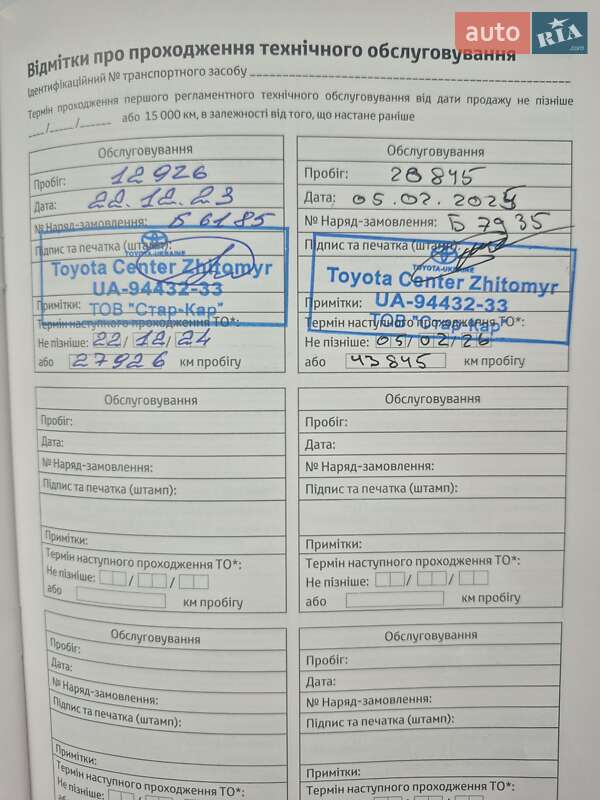 auto RIA .com
Відмітки про проходження технічного обслуговування
Ідентифікаційний № транспортного засобу
Термін проходження першого регламентного технічного обслуговування від дати продажу не пізніше
__/__/__ або 15 000 км, в залежності від того, що настане раніше
Обслуговування
Пробіг: 12926
Дата: 22.12.23
№ Наряд-замовлення: Б 6185
Підпис та печатка (штамп):
TOYOTA-UKRAINE
Toyota Center Zhitomyr
UA-94432-33
Примітки: ТОВ "Стар-Кар"
Термін наступного проходження ТО*:
Не пізніше: 22/12/24
або 27926 км пробігу
Обслуговування
Пробіг: 28845
Дата: 05.02.2025
№ Наряд-замовлення: Б 7935
Підпис та печатка (штамп):
TOYOTA-UKRAINE
Toyota Center Zhitomyr
UA-94432-33
Примітки:
ТОВ "Стар-Кар"
Термін наступного проходження ТО*:
Не пізніше: 05/02/26
або 43845 км пробігу
Обслуговування
Пробіг:
Дата:
№ Наряд-замовлення:
Підпис та печатка (штамп):
Примітки:
Термін наступного проходження ТО*:
Не пізніше: / /
або км пробігу
Обслуговування
Пробіг:
Дата:
№ Наряд-замовлення:
Підпис та печатка (штамп):
Примітки:
Термін наступного проходження ТО*:
Не пізніше: / /
або км пробігу
Обслуговування
Пробіг:
Дата:
№ Наряд-замовлення:
Підпис та печатка (штамп):
Примітки:
Термін наступного проходження ТО*:
Не пізніше:
Обслуговування
Пробіг:
Дата:
№ Наряд-замовлення:
Підпис та печатка (штамп):
Примітки:
Термін наступного проходження ТО*: